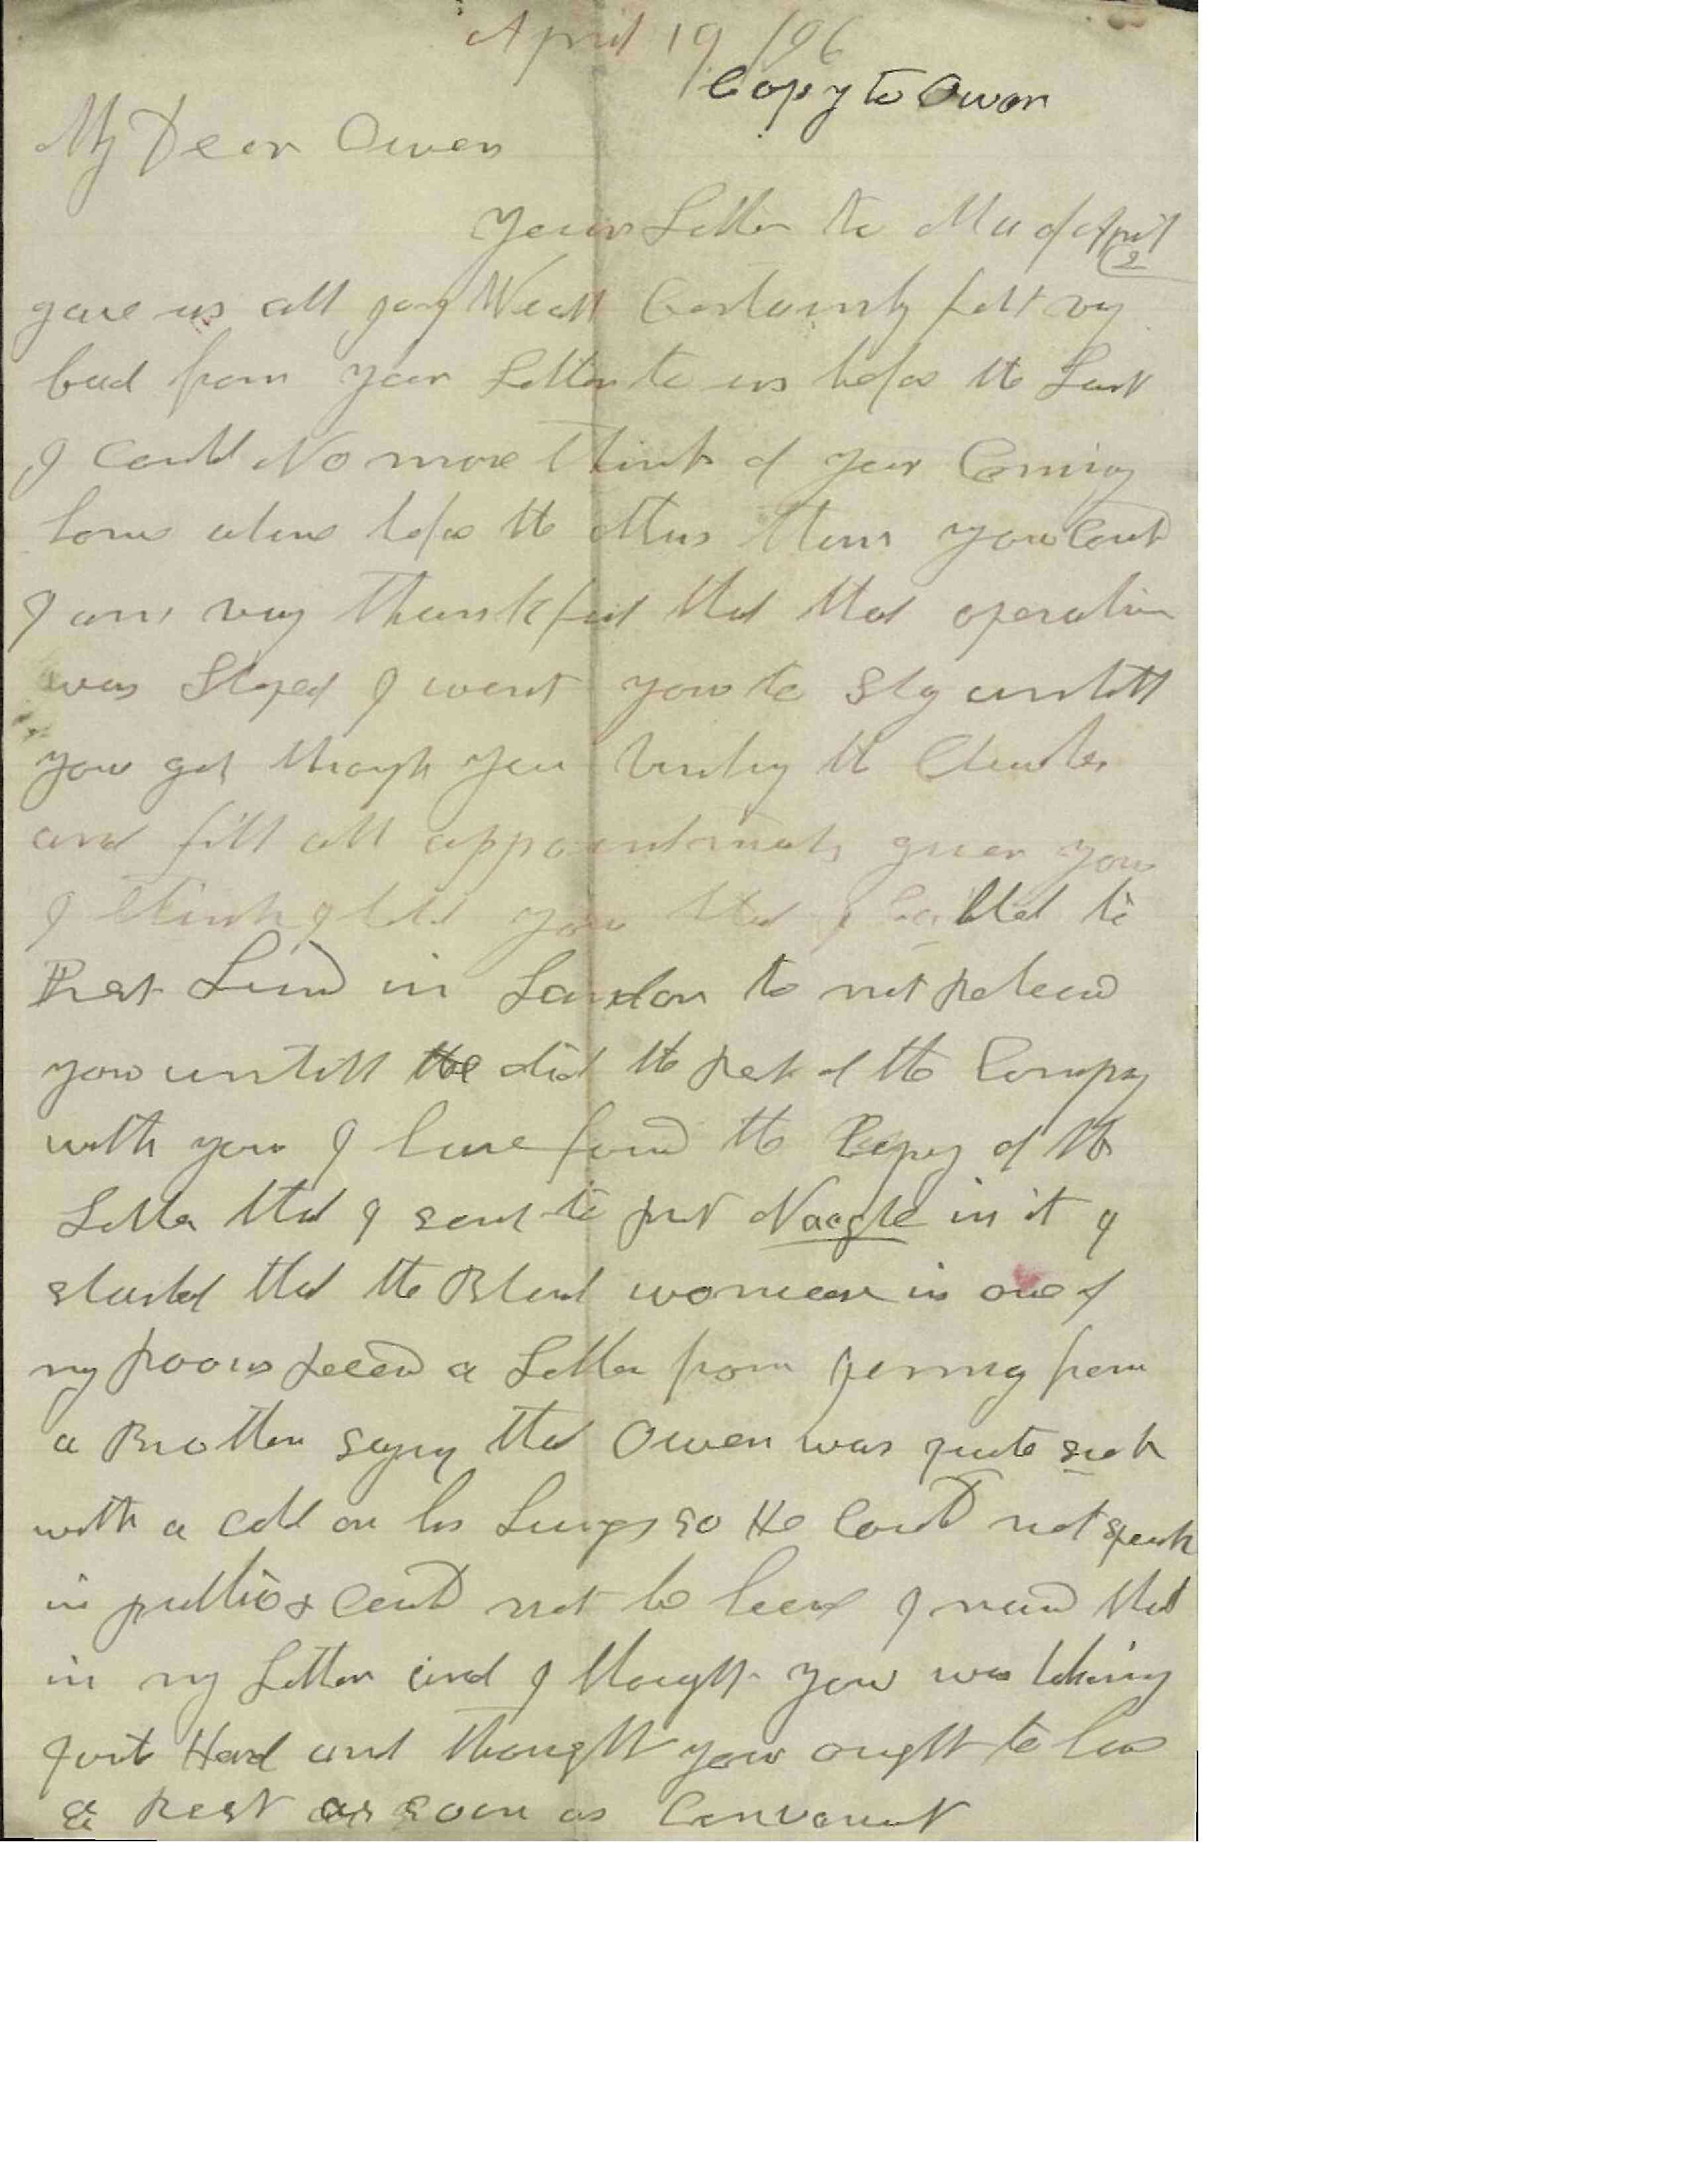 April 19 /96
Copy to Owen
My Dear Owen
Your Letter to Ma of April
2
gave us all joy We all Certainly felt vy
bad from your Letter to us before the Last
I Could No more think of your Coming
home alone before the others then you Could
I am very thankful that that operation
was Stoped I want you to Sty untill
you get through your the
and fill all appointments given you
I think I told you that I to
Prest Lund in London to not releced
you untill the did the rest of the Compny
with you I have found the Copey of the
Letter that I sent to put Naegle in it I
started that the Blind woman in one of
my rooms receed a Letter from Jermny from
a Brother sayng that Owen was quite sick
with a cold on his Lungs so He Could not speak
in public & Could not be heard I named that
in my Letter and I thought you was taking
quit Hard and thought you ought to have
a rest as soon as Convanent